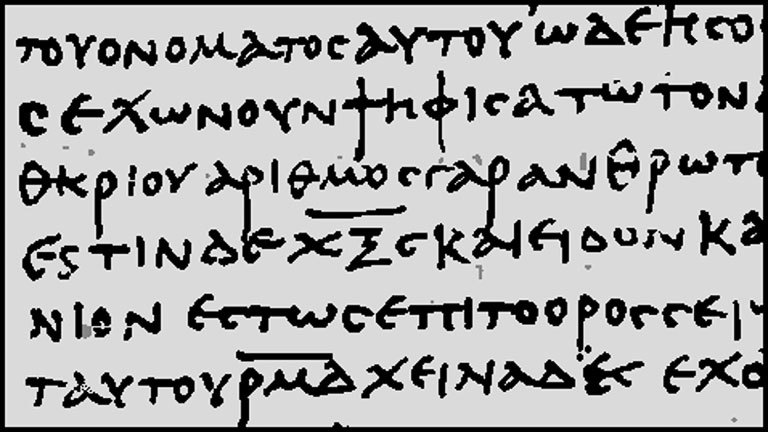 ΤΟΥΟΝΟΜΑΤΟϹΑΥΤΟΥ ΩΔΕΗϹΟ
Ϲ ΕΧΩΝΟΥΝΨΗΦΙϹΑΤΩΤΟΝΑ
ΘΗΡΙΟΥ ΑΡΙΘΜΟϹΓΑΡΑΝΘΡΩΠ
ΕϹΤΙΝΔΕ Χ̅Ξ̅Ϛ̅ ΚΑΙΕΙΔΟΝ ΚΑ
ΝΙΟΝ ΕϹΤΩϹΕΠΙΤΟΟΡΟϹϹΕΙ
ΤΑΥΤΟΥ Ρ̅Μ̅Δ̅ ΧΕΙΛΙΑΔΕϹ ΕΧΟ